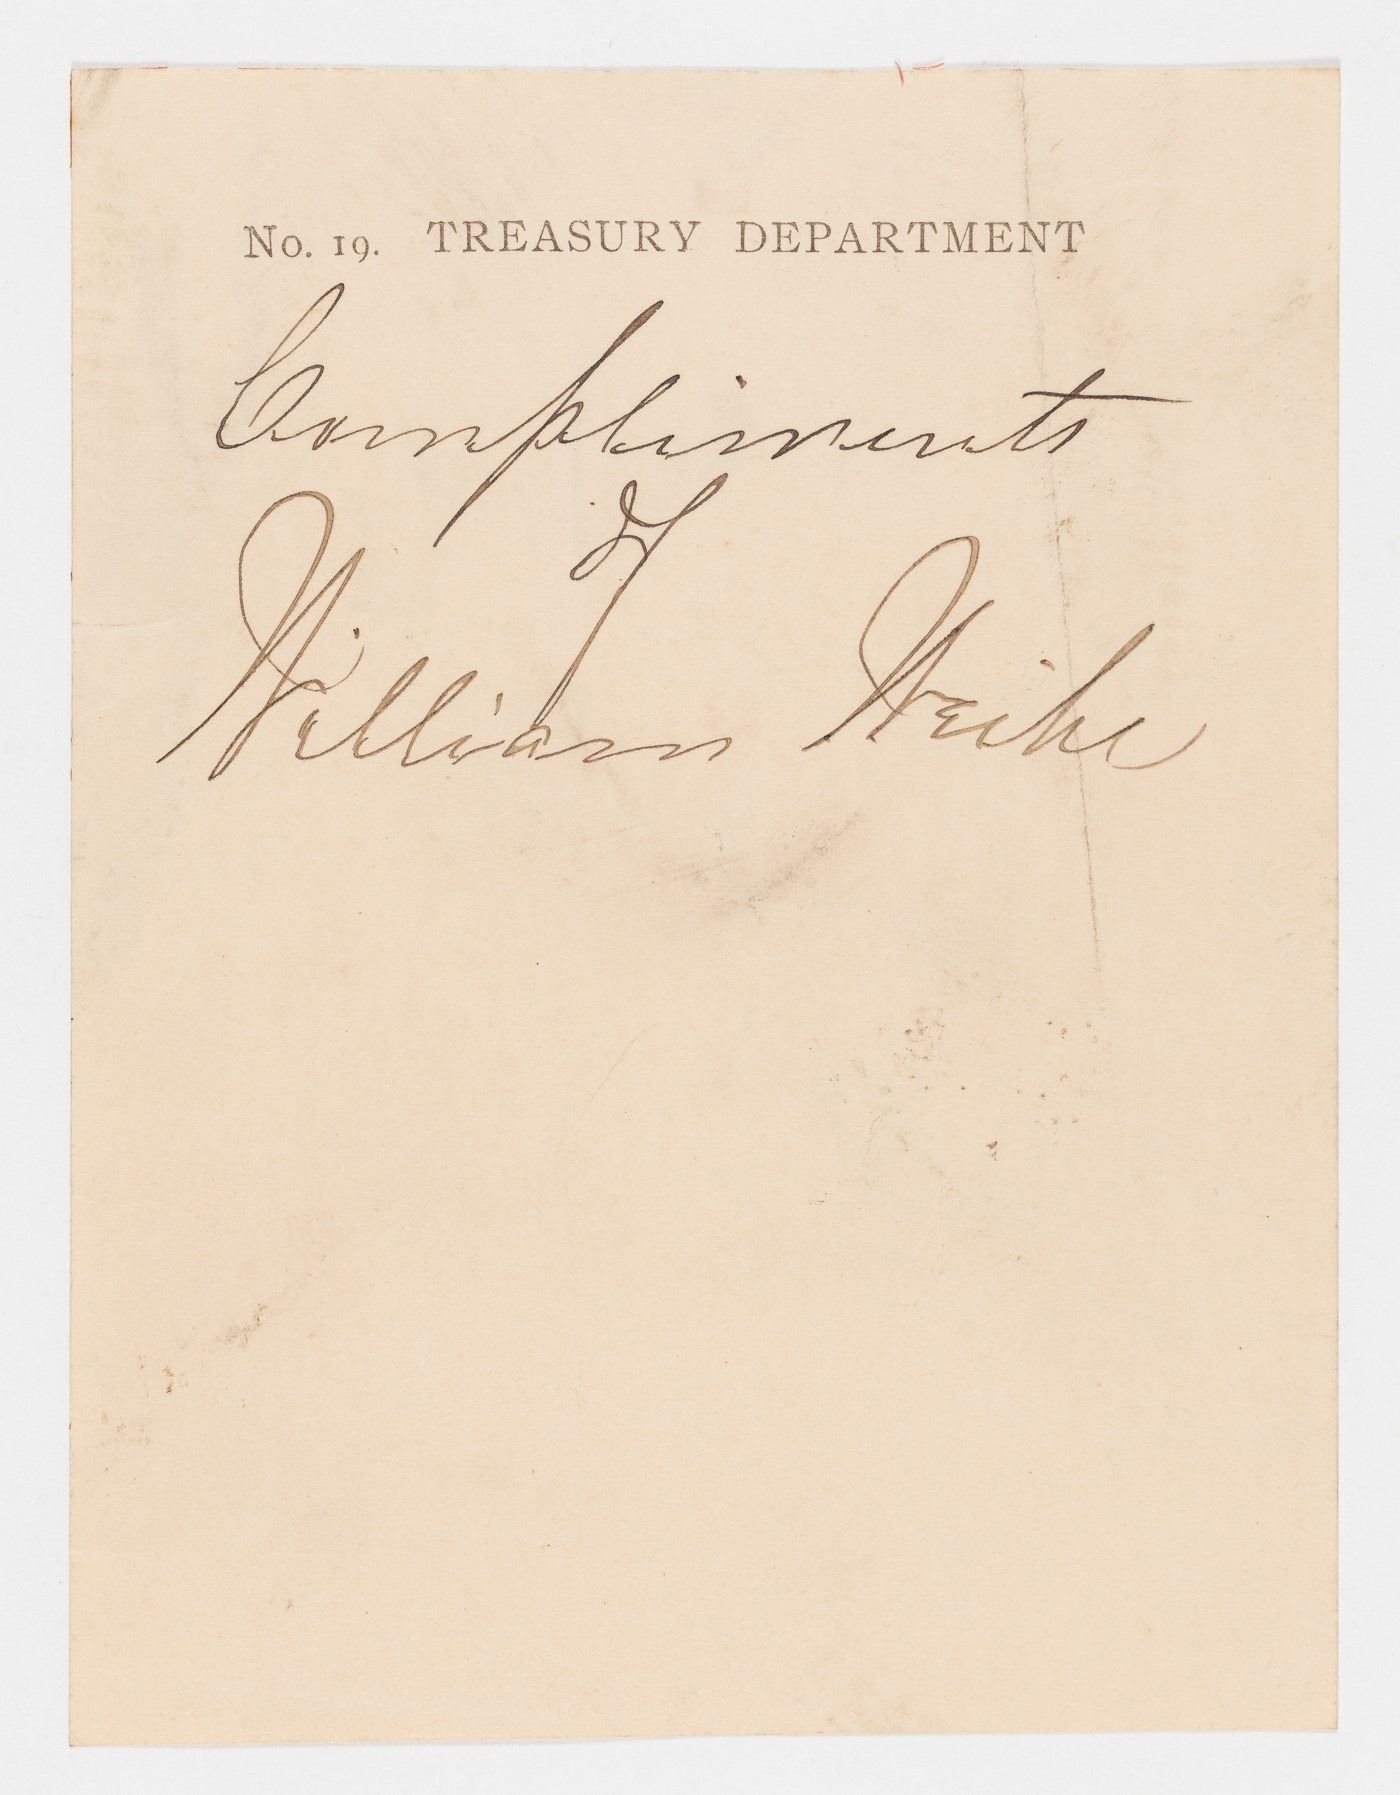 No. 19. TREASURY DEPARTMENT
Compliments
of
William Weihe